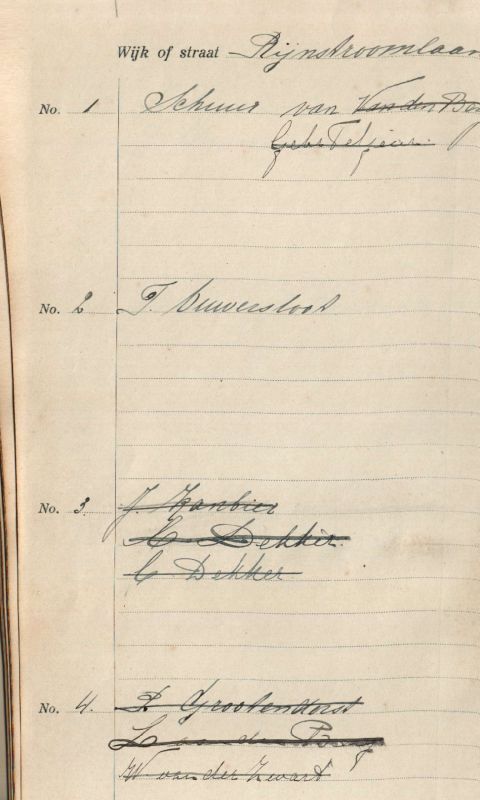 Wijk of straat Rijnstroomlaan
No. 1 Schuur van Van den Berg
Gebr Teljeur.
No. 2 T. Duiversloot
No. 3. J. Kanbier
Dekker.
C Dekker
No. 4. P. Grootendorst
van den Berg
W van der Zwart